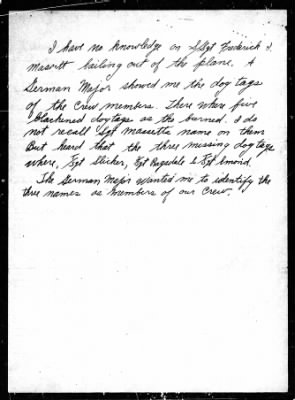 I have no knowledge on S/Sgt Frederick I.
Massitt bailing out of the plane. A
German Major showed me the dog tags
of the crew members. There where five
blackened dog tags as the burned. I do
not recall Sgt Massetts name on them
But heard that the three missing dog tags
where, Sgt Slicker, Sgt Ragsdale & Sgt Emond.
The German Major wanted me to identify the
three names as members of our crew.